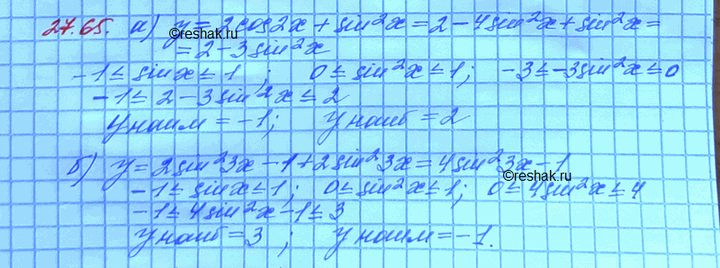 27.65. а) y = 2cos2x + sin²x = 2 - 4sin²x + sin²x =
= 2 - 3sin²x
-1 ≤ sinx ≤ 1 ; 0 ≤ sin²x ≤ 1; -3 ≤ -3sin²x ≤ 0
-1 ≤ 2 - 3sin²x ≤ 2
y наим = -1; y наиб = 2
б) y = 2sin²3x - 1 + 2sin²3x = 4sin²3x - 1
-1 ≤ sinx ≤ 1; 0 ≤ sin²x ≤ 1; 0 ≤ 4sin²x ≤ 4
-1 ≤ 4sin²x - 1 ≤ 3
y наиб = 3 ; y наим = -1.
©reshak.ru
©reshak.ru
©reshak.ru
©reshak.ru